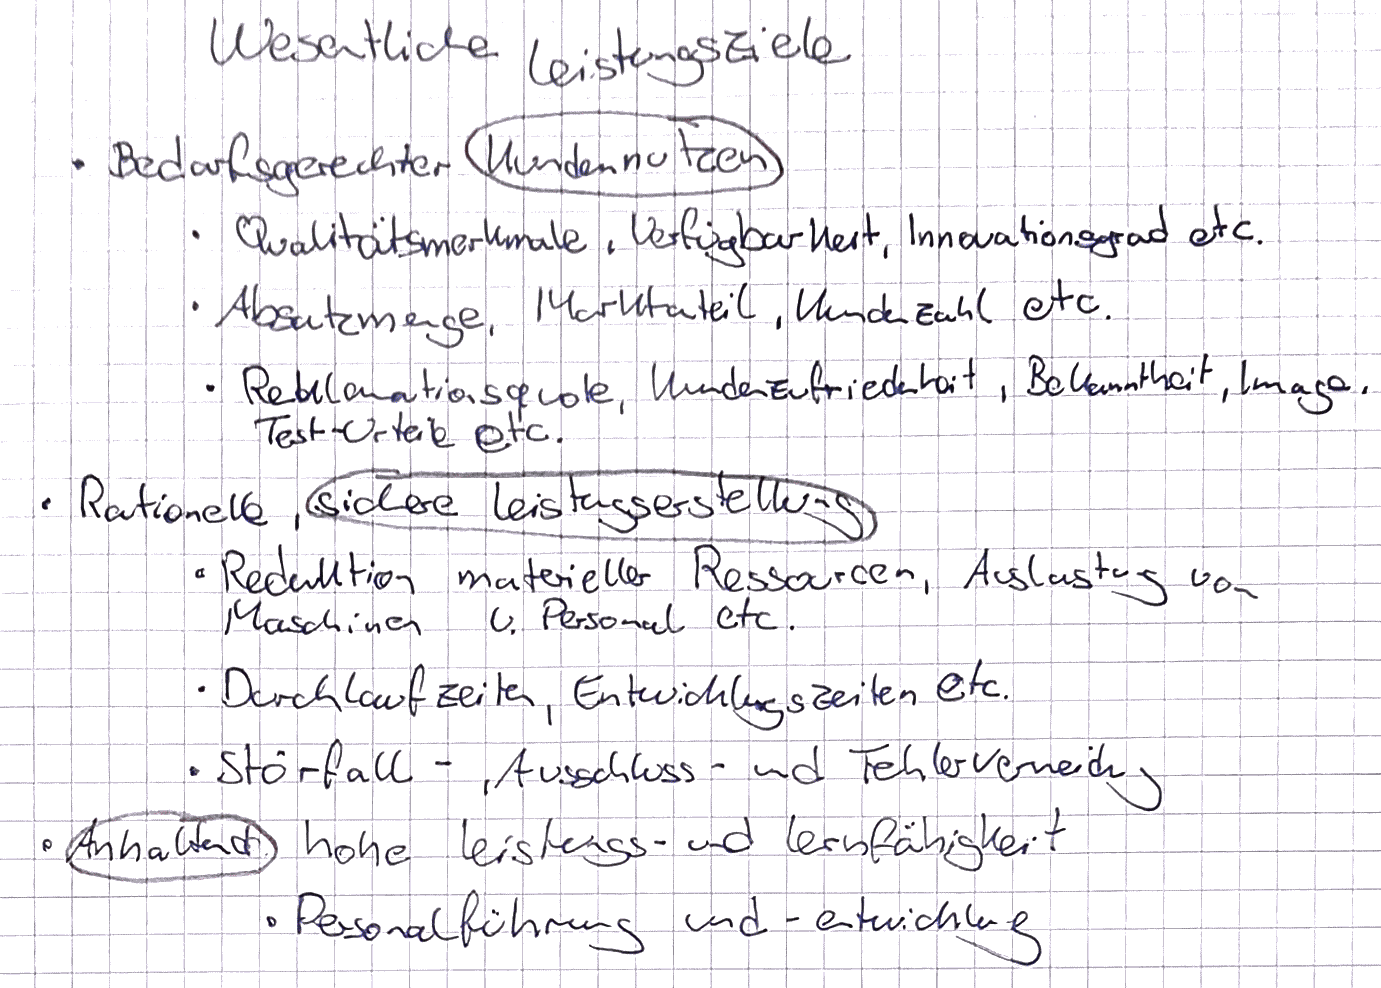 Wesentliche Leistungsziele
• Bedarfsgerechter Kundennutzen
• Qualitätsmerkmale, Verfügbarkeit, Innovationsgrad etc.
• Absatzmenge, Marktanteil, Kundenzahl etc.
• Reklamationsquote, Kundenzufriedenheit, Bekanntheit, Image,
Test-Urteile etc.
• Rationelle, sichere Leistungserstellung
• Reduktion materieller Ressourcen, Auslastung von
Maschinen u. Personal etc.
• Durchlaufzeiten, Entwicklungszeiten etc.
• Störfall-, Ausschluss- und Fehlervermeidung
• Anhaltend hohe Leistungs- und Lernfähigkeit
• Personalführung und -entwicklung